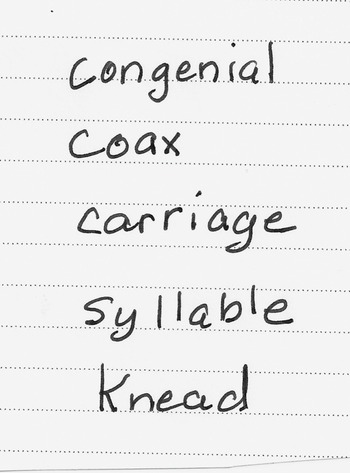 Congenial
Coax
Carriage
Syllable
Knead